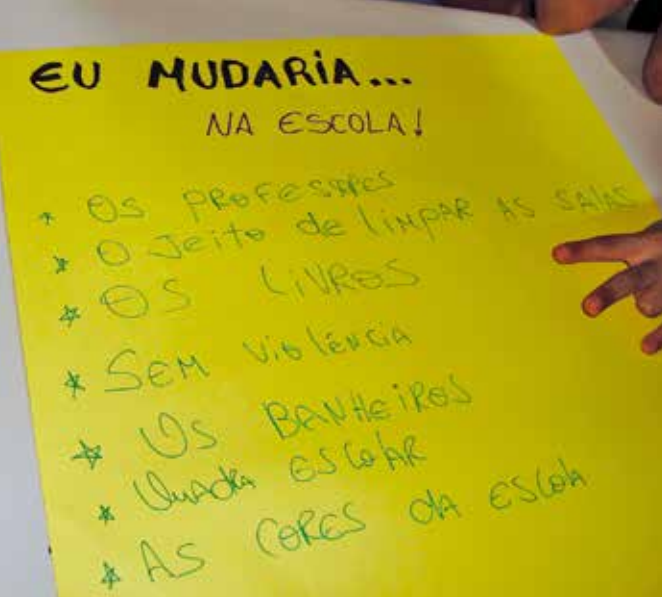 EU MUDARIA...
NA ESCOLA!
* OS PROFESSORES
* O Jeito de limpar AS SALAS
* OS LIVROS
* SEM Violência
* OS BANHEIROS
* QuADRA ESCOLAR
* AS CORES DA ESCOLA